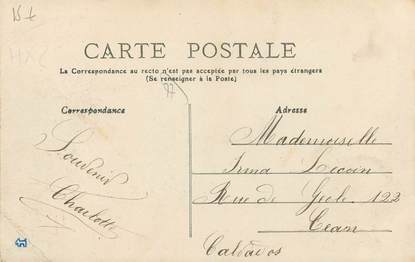 15 t
CARTE POSTALE
La Correspondance au recto n'est pas acceptée par tous les pays étrangers
(Se renseigner à la Poste)
77
Correspondance
Adresse
Souvenir
Charlotte
Mademoiselle
Irma Lecoin
Rue de Geole 122
Caen
Calvados